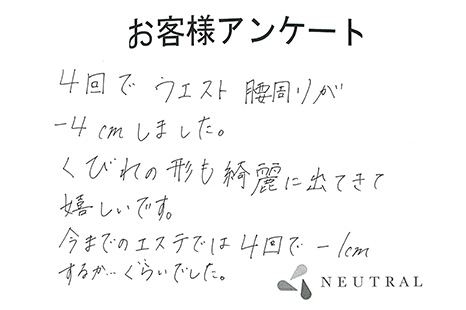 お客様アンケート
4回で ウエスト 腰周りが
-4cmしました。
くびれの形も綺麗に出てきて
嬉しいです。
今までのエステでは4回で -1cm
するか…ぐらいでした。
NEUTRAL